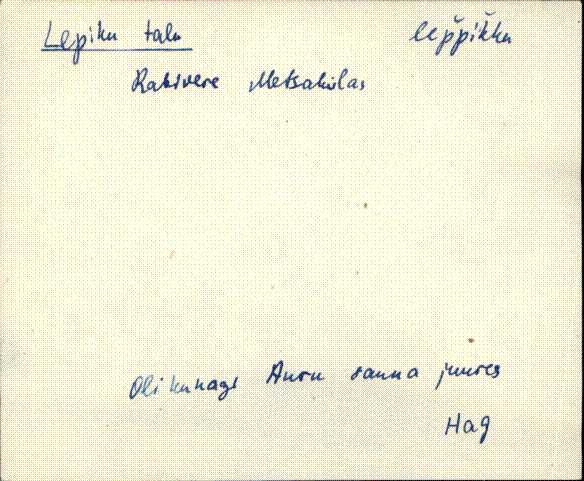 Lepiku talu
lep̌pik̆ku
Rakvere Metsakülas
Oli kunagi Auru sauna juures
Hag